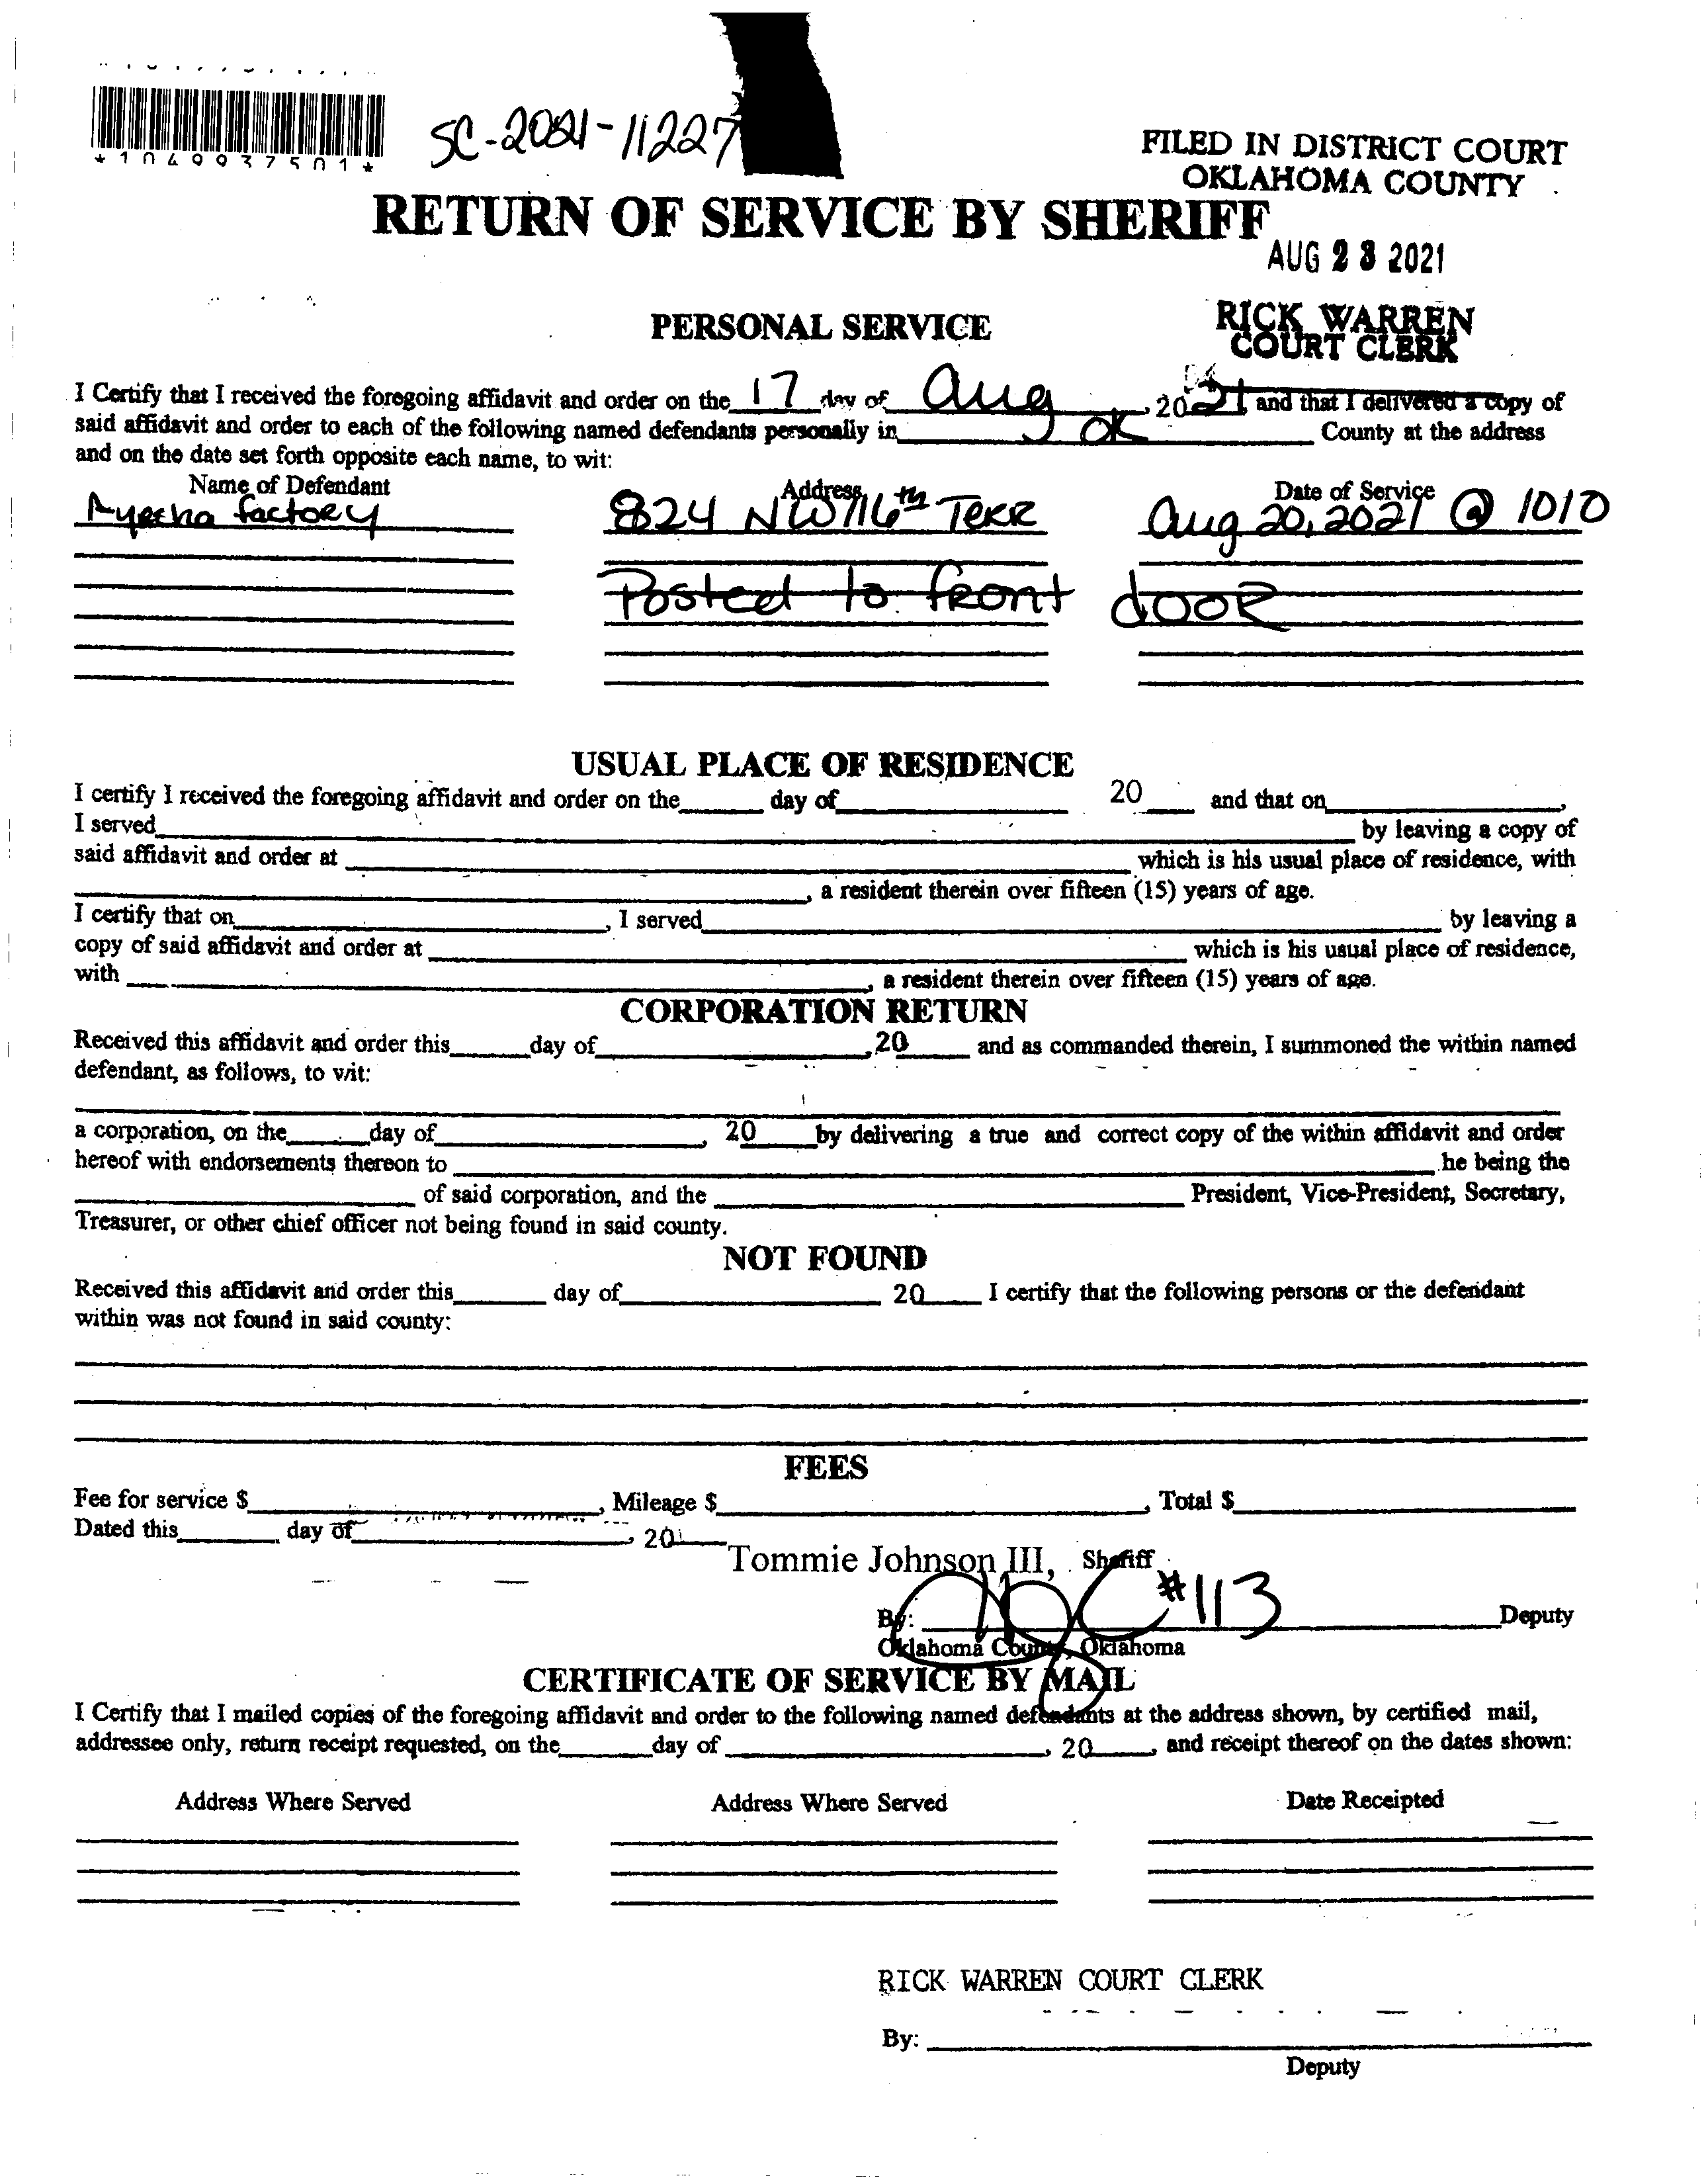 SC-2021-11227
*1049937501*
FILED IN DISTRICT COURT
OKLAHOMA COUNTY
RETURN OF SERVICE BY SHERIFF
AUG 23 2021
PERSONAL SERVICE
RICK WARREN
COURT CLERK
I Certify that I received the foregoing affidavit and order on the 17 day of Aug, 2021, and that I delivered a copy of
said affidavit and order to each of the following named defendants personally in OK County at the address
and on the date set forth opposite each name, to wit:
Name of Defendant Address Date of Service
factory 824 NW 116th Terr Aug 20, 2021 @ 1010
Posted to front door
USUAL PLACE OF RESIDENCE
I certify I received the foregoing affidavit and order on the______ day of__________ 20____ and that on__________,
I served__________ by leaving a copy of
said affidavit and order at __________ which is his usual place of residence, with
__________, a resident therein over fifteen (15) years of age.
I certify that on__________, I served__________ by leaving a
copy of said affidavit and order at __________ which is his usual place of residence,
with __________, a resident therein over fifteen (15) years of age.
CORPORATION RETURN
Received this affidavit and order this______day of__________,20____ and as commanded therein, I summoned the within named
defendant, as follows, to wit:
a corporation, on the______day of__________, 20____by delivering a true and correct copy of the within affidavit and order
hereof with endorsements thereon to __________ he being the
__________ of said corporation, and the __________ President, Vice-President, Secretary,
Treasurer, or other chief officer not being found in said county.
NOT FOUND
Received this affidavit and order this______ day of__________ 20____ I certify that the following persons or the defendant
within was not found in said county:
FEES
Fee for service $__________, Mileage $__________, Total $__________
Dated this______ day of__________, 20____
Tommie Johnson III, Sheriff
By: __________ #113 Deputy
Oklahoma County, Oklahoma
CERTIFICATE OF SERVICE BY MAIL
I Certify that I mailed copies of the foregoing affidavit and order to the following named defendants at the address shown, by certified mail,
addressee only, return receipt requested, on the______day of __________, 20____, and receipt thereof on the dates shown:
Address Where Served Address Where Served Date Receipted
RICK WARREN COURT CLERK
By: __________
Deputy